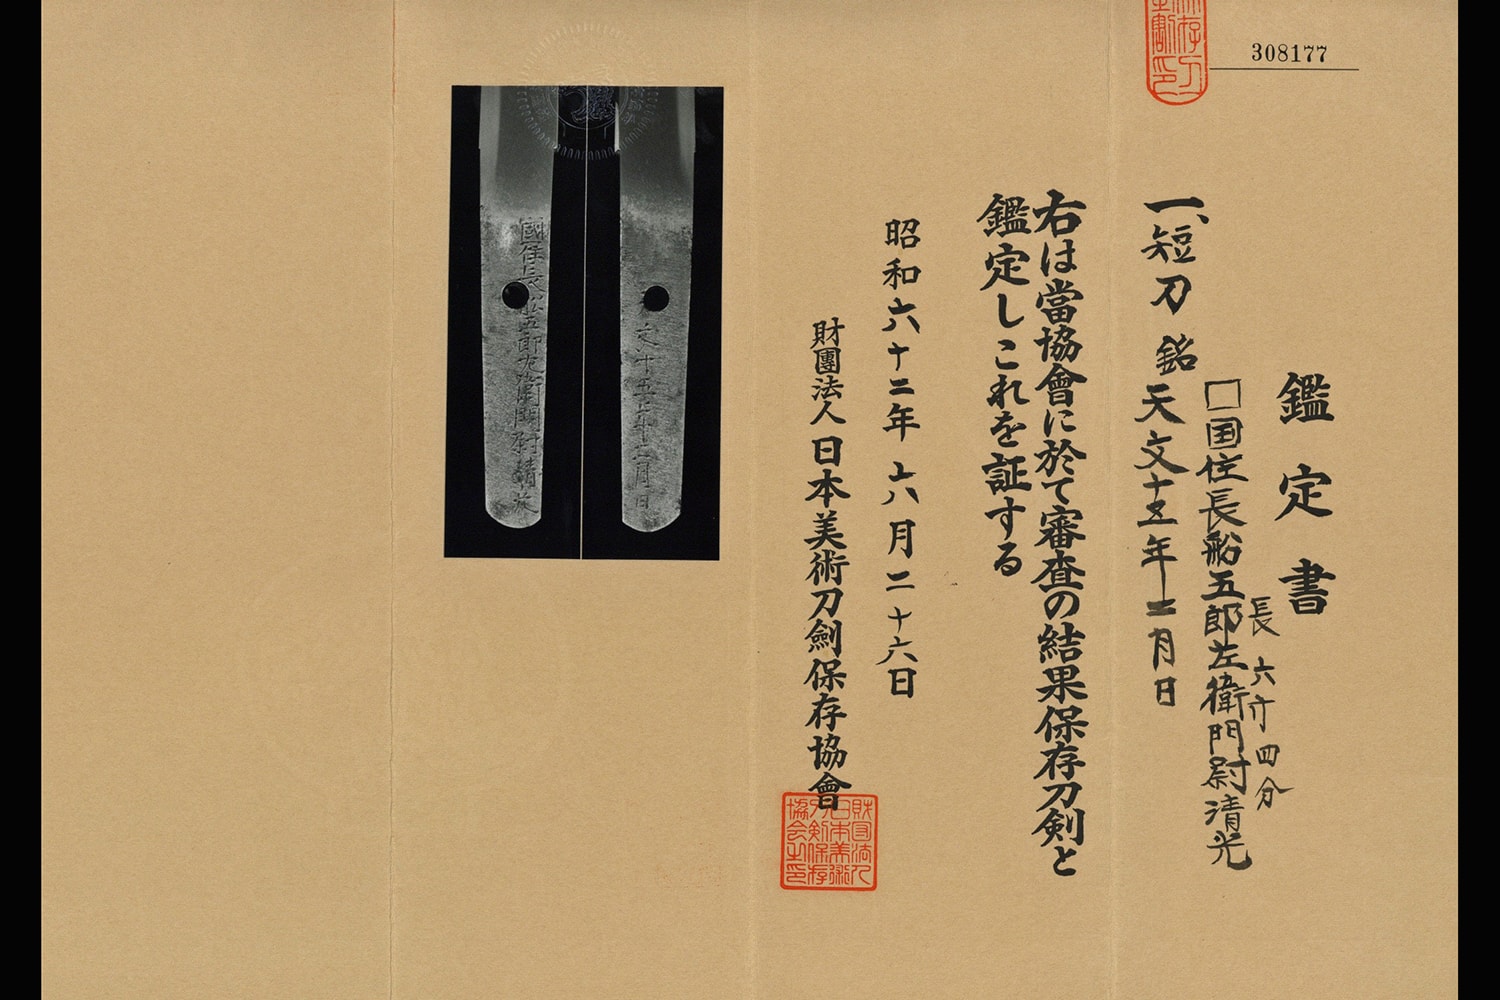 308177
鑑定書
一、短刀 銘
□国住長船五郎左衛門尉清光
天文十五年二月日
長 六寸四分
右は當協會に於て審査の結果保存刀剣と
鑑定しこれを証する
昭和六十二年六月二十六日
財團法人日本美術刀劍保存協會
財団法人
日本美術
刀剣保存
協会之印
國住長船五郎左衛門尉清光
文十五年二月日